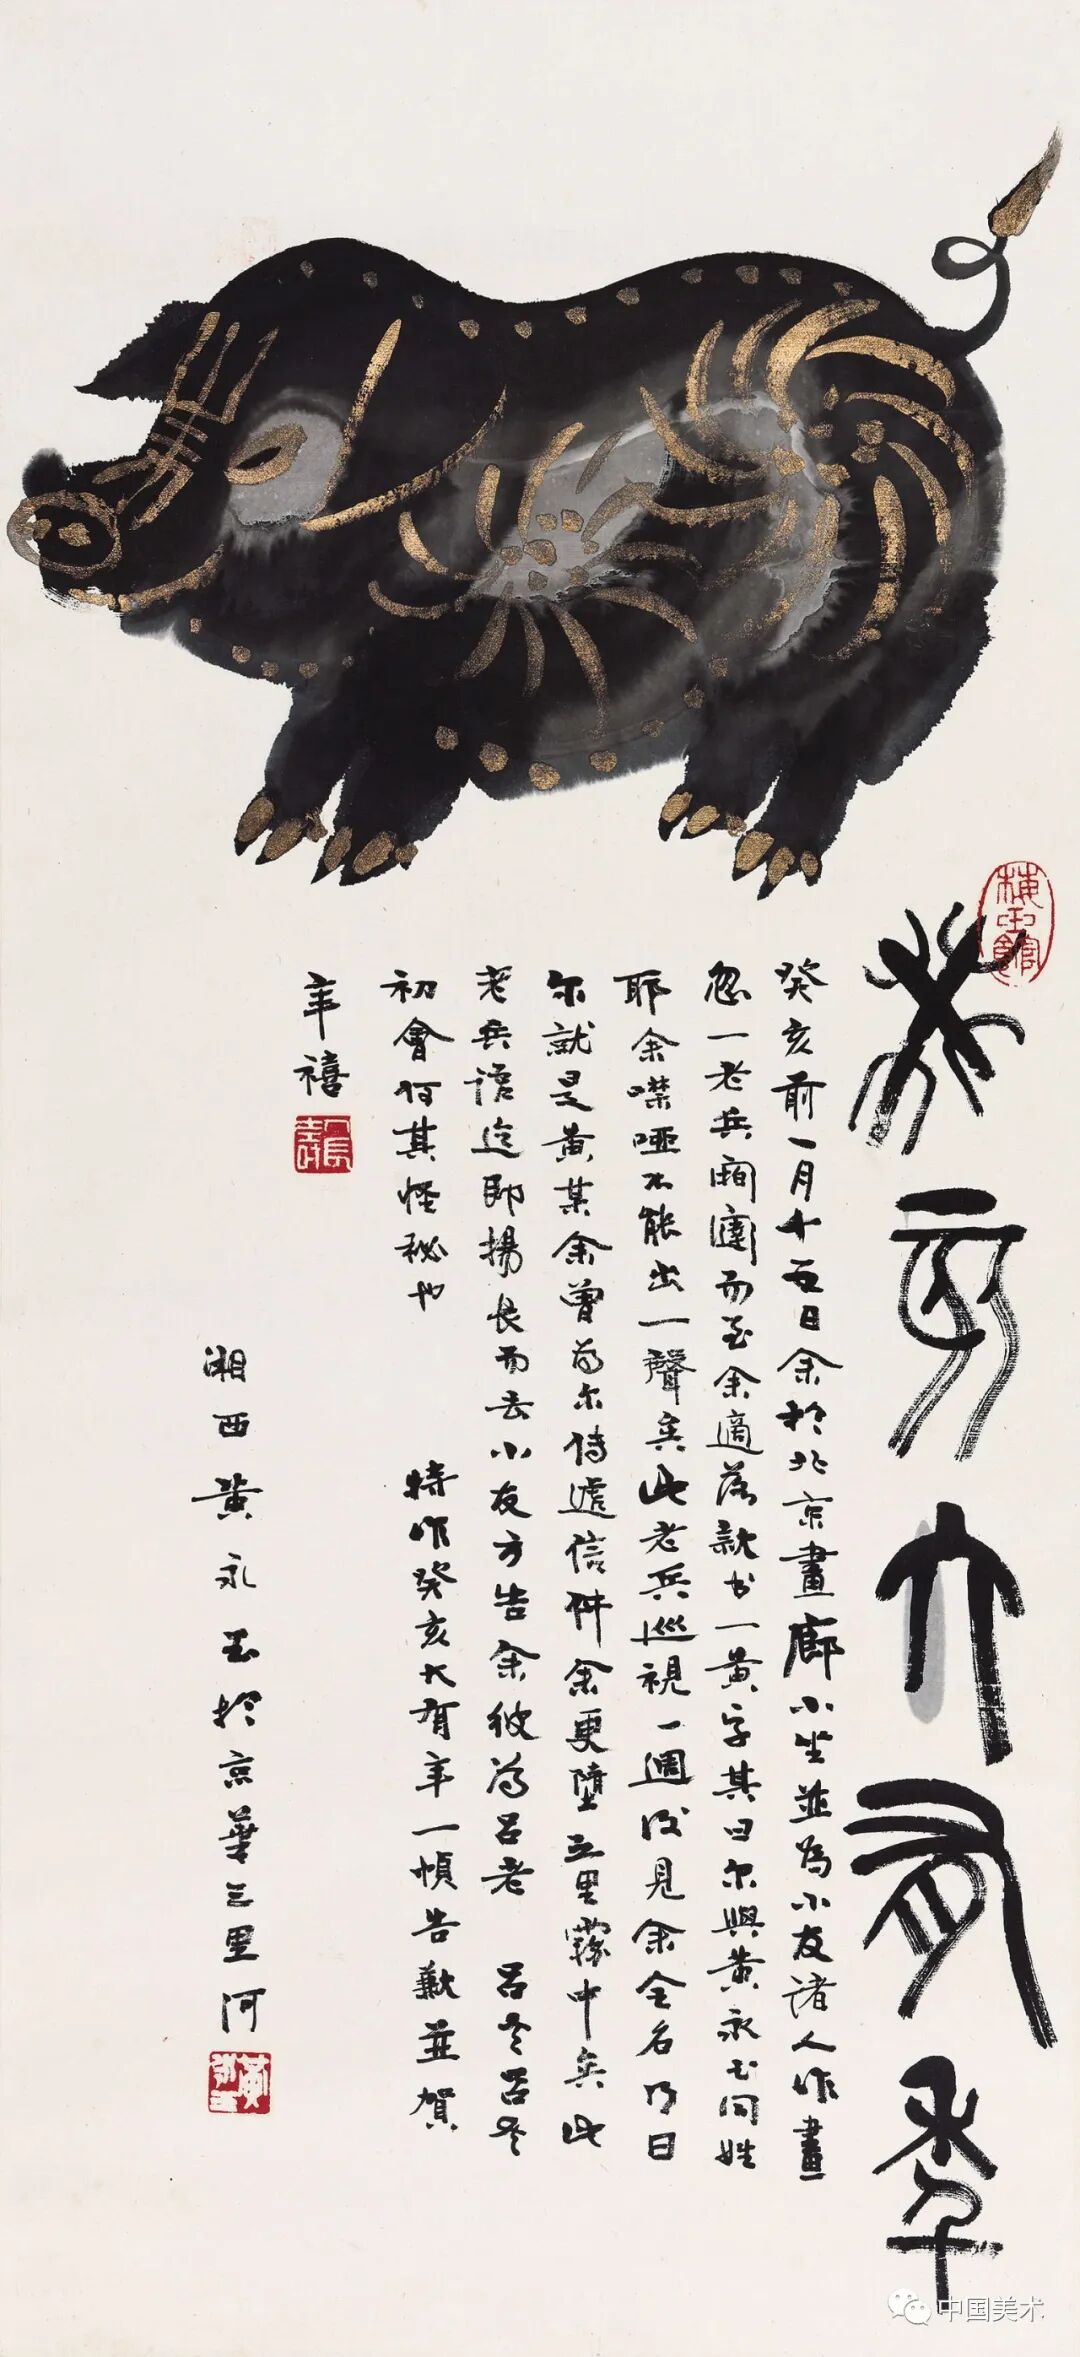 癸亥大有年
癸亥前一月十五日余於北京畫廊小坐並為小友諸人作畫
忽一老兵闹闹而至余適落款書一黄字其曰尔與黄永玉同姓
耶余噤啞不能出一聲矣此老兵巡視一週後見余全名乃曰
尔就是黄某余曾為尔傳遞信件余更墮五里霧中矣此
老兵語迄即揚長而去小友方告余彼為呂老 呂冬呂冬
初會何其怪秘也 特作癸亥大有年一幀告歉並賀
年禧
湘西黄永玉於京華三里河
梅
館
黄
中国美术